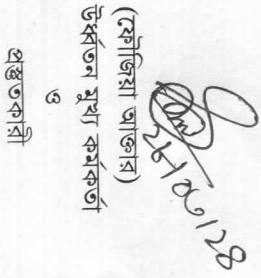 (ফৌজিয়া আক্তার)
উর্ধ্বতন মুখ্য কর্মকর্তা
ও
প্রস্তুতকারী